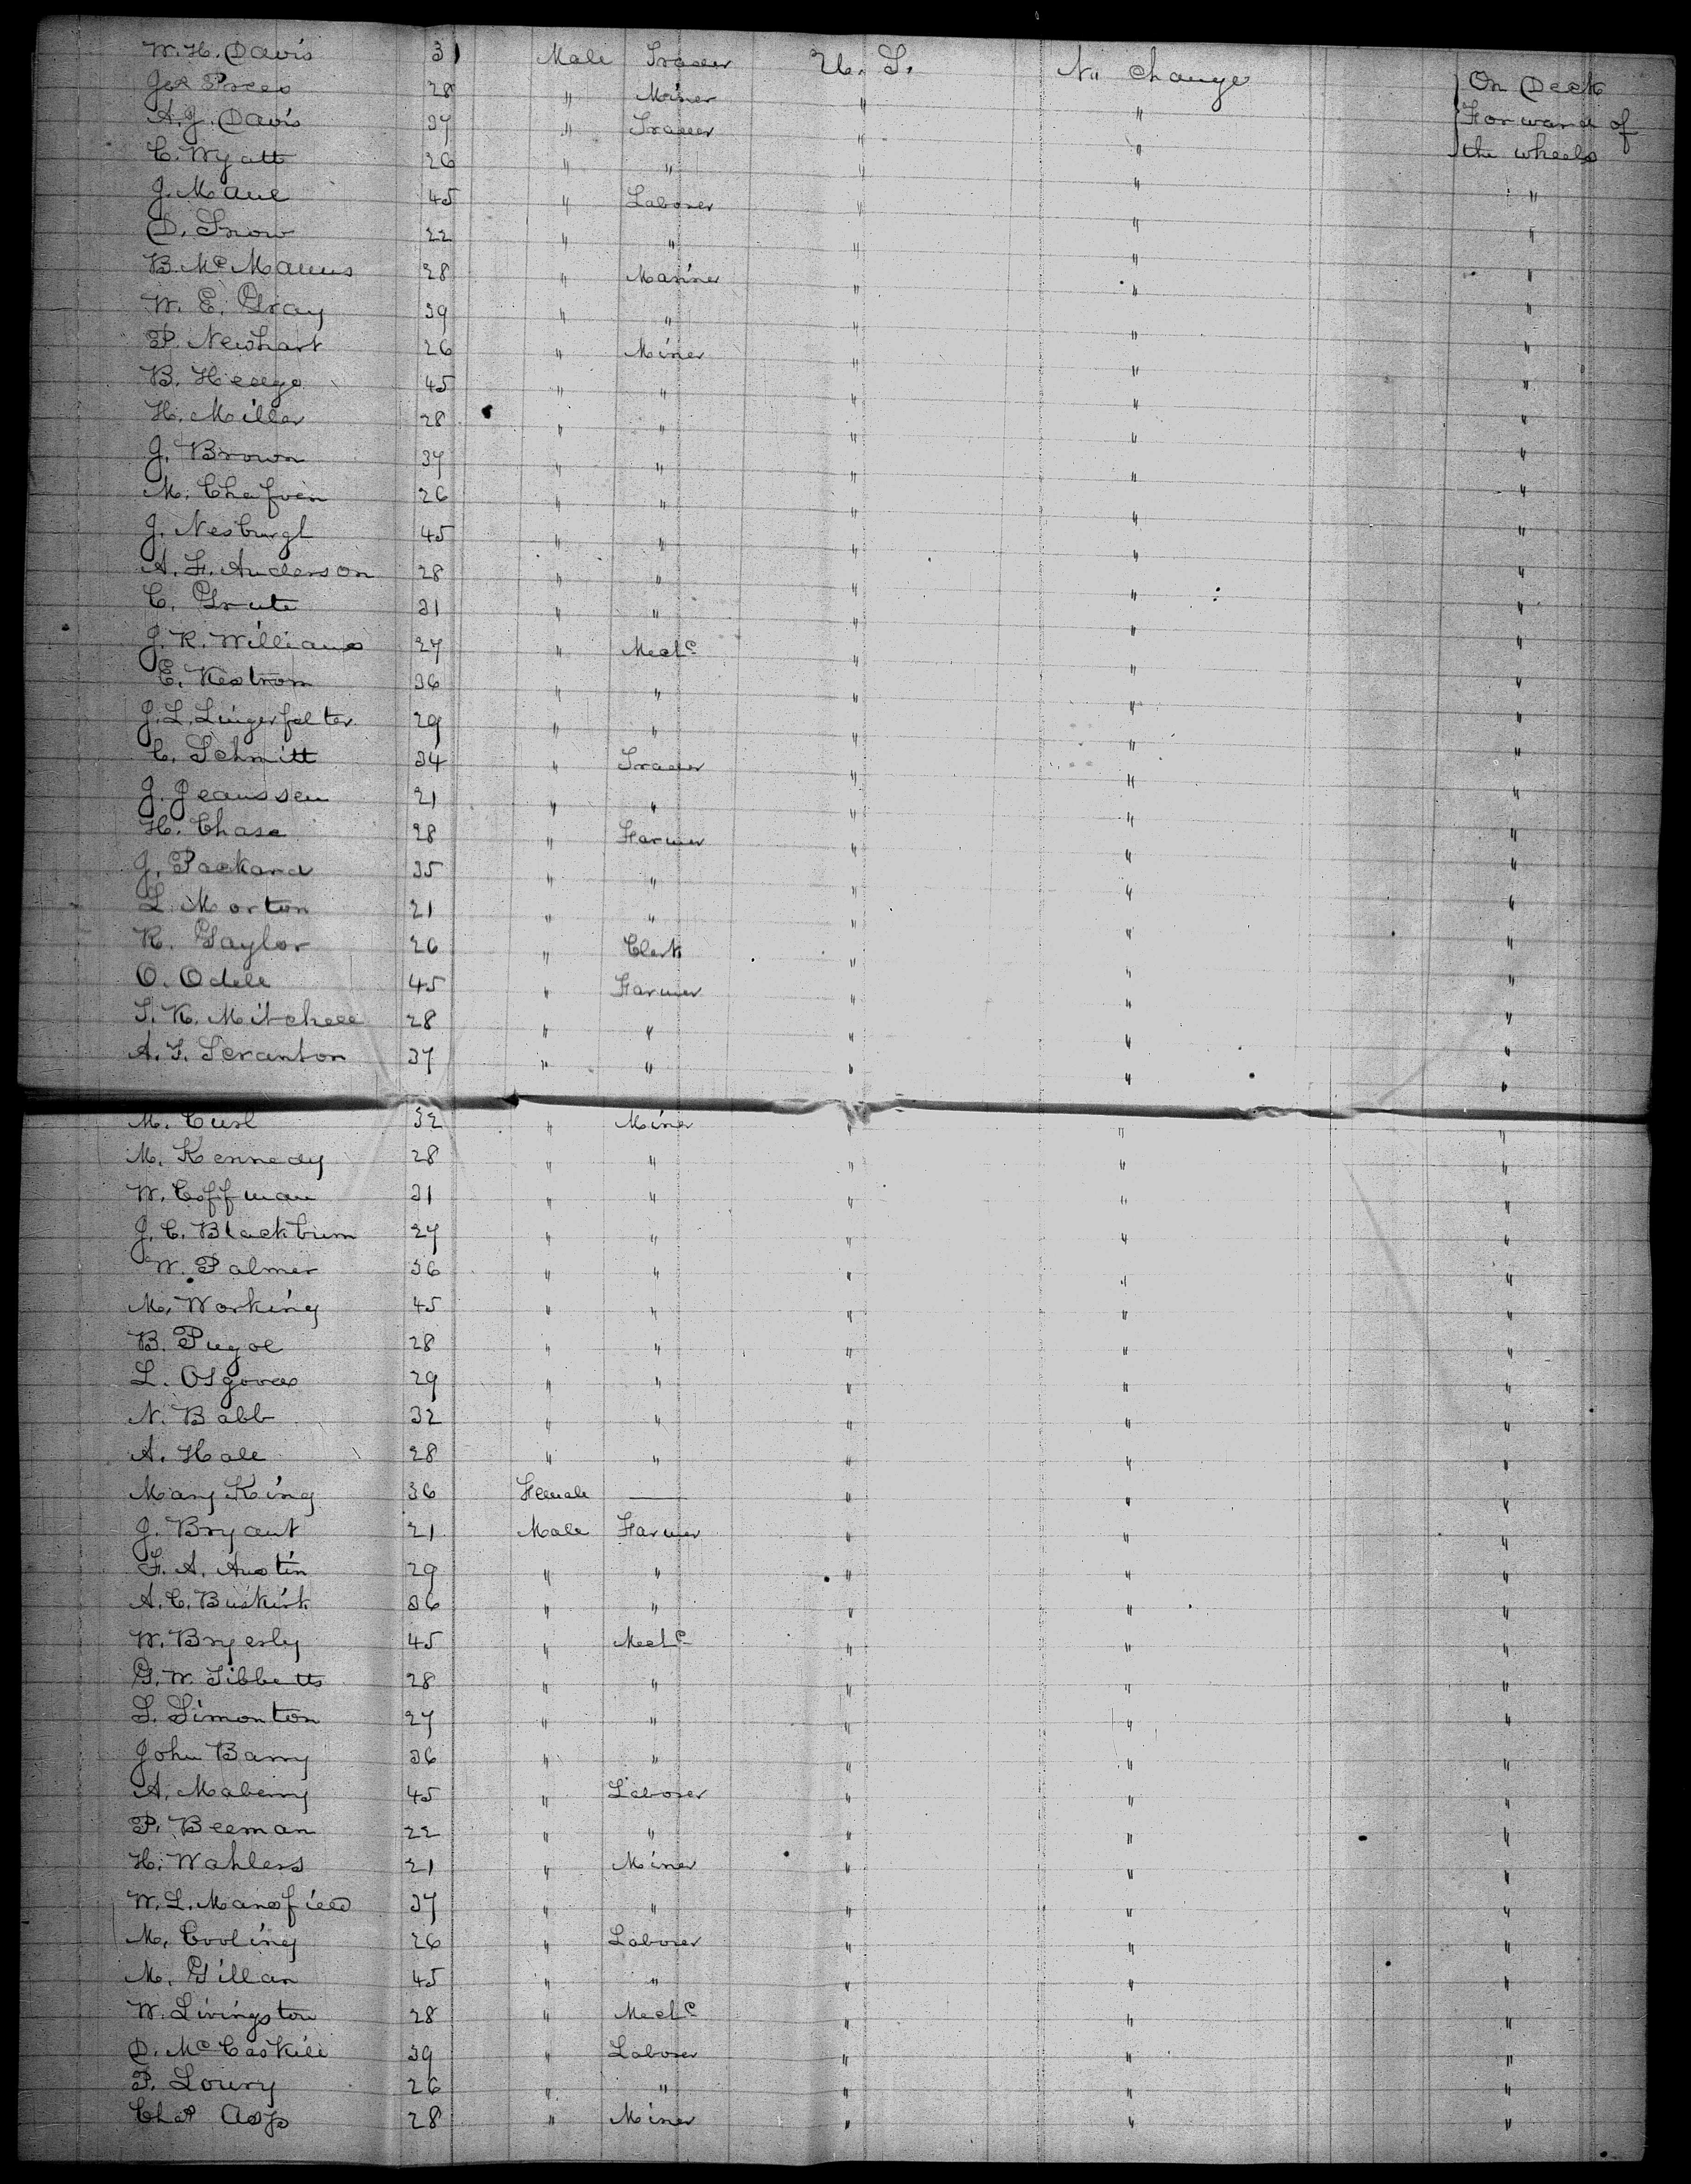 W. H. Davis 31 Male Trader U. S. No change On Deck
Jos Prees 28 " Miner " " Forward of
A. J. Davis 37 " Trader " " the wheels
C. Wyatt 26 " " " " "
J. Maul 45 " Laborer " " "
D. Snow 22 " " " " "
B. McManus 28 " Mariner " " "
W. E. Gray 39 " " " " "
P. Newhart 26 " Miner " " "
B. Heago 45 " " " " "
H. Miller 28 " " " " "
J. Brown 37 " " " " "
M. Chafven 26 " " " " "
J. Nesburgh 45 " " " " "
A. F. Anderson 28 " " " " "
C. Grute 31 " " " " "
J. R. Williams 27 " Mechc " " "
E. Kestrom 36 " " " " "
J. L. Lingerfelter 29 " " " " "
C. Schmitt 34 " Trader " " "
J. Jeanssen 21 " " " " "
H. Chase 28 " Farmer " " "
J. Packard 35 " " " " "
L. Morton 21 " " " " "
R. Taylor 26 " Clerk " " "
O. Odell 45 " Farmer " " "
S. K. Mitchell 28 " " " " "
A. F. Scranton 37 " " " " "
M. Curl 32 " Miner " " "
M. Kennedy 28 " " " " "
W. Coffman 31 " " " " "
J. C. Blackburn 27 " " " " "
W. Palmer 36 " " " " "
M. Working 45 " " " " "
B. Pugol 28 " " " " "
L. Osgoods 29 " " " " "
N. Babb 32 " " " " "
A. Hall 28 " " " " "
Mary King 36 Female — " " "
J. Bryant 21 Male Farmer " " "
F. A. Austin 29 " " " " "
A. C. Buskirk 36 " " " " "
W. Bryerly 45 " Mechc " " "
G. W. Tibbetts 28 " " " " "
S. Simonton 27 " " " " "
John Barry 36 " " " " "
A. Maberry 45 " Laborer " " "
P. Beeman 22 " " " " "
H. Wahlers 21 " Miner " " "
W. L. Mansfield 37 " " " " "
M. Cooling 26 " Laborer " " "
M. Gillan 45 " " " " "
W. Livingston 28 " Mechc " " "
D. McCaskill 39 " Laborer " " "
P. Lowry 26 " " " " "
Chas Asp 28 " Miner " " "